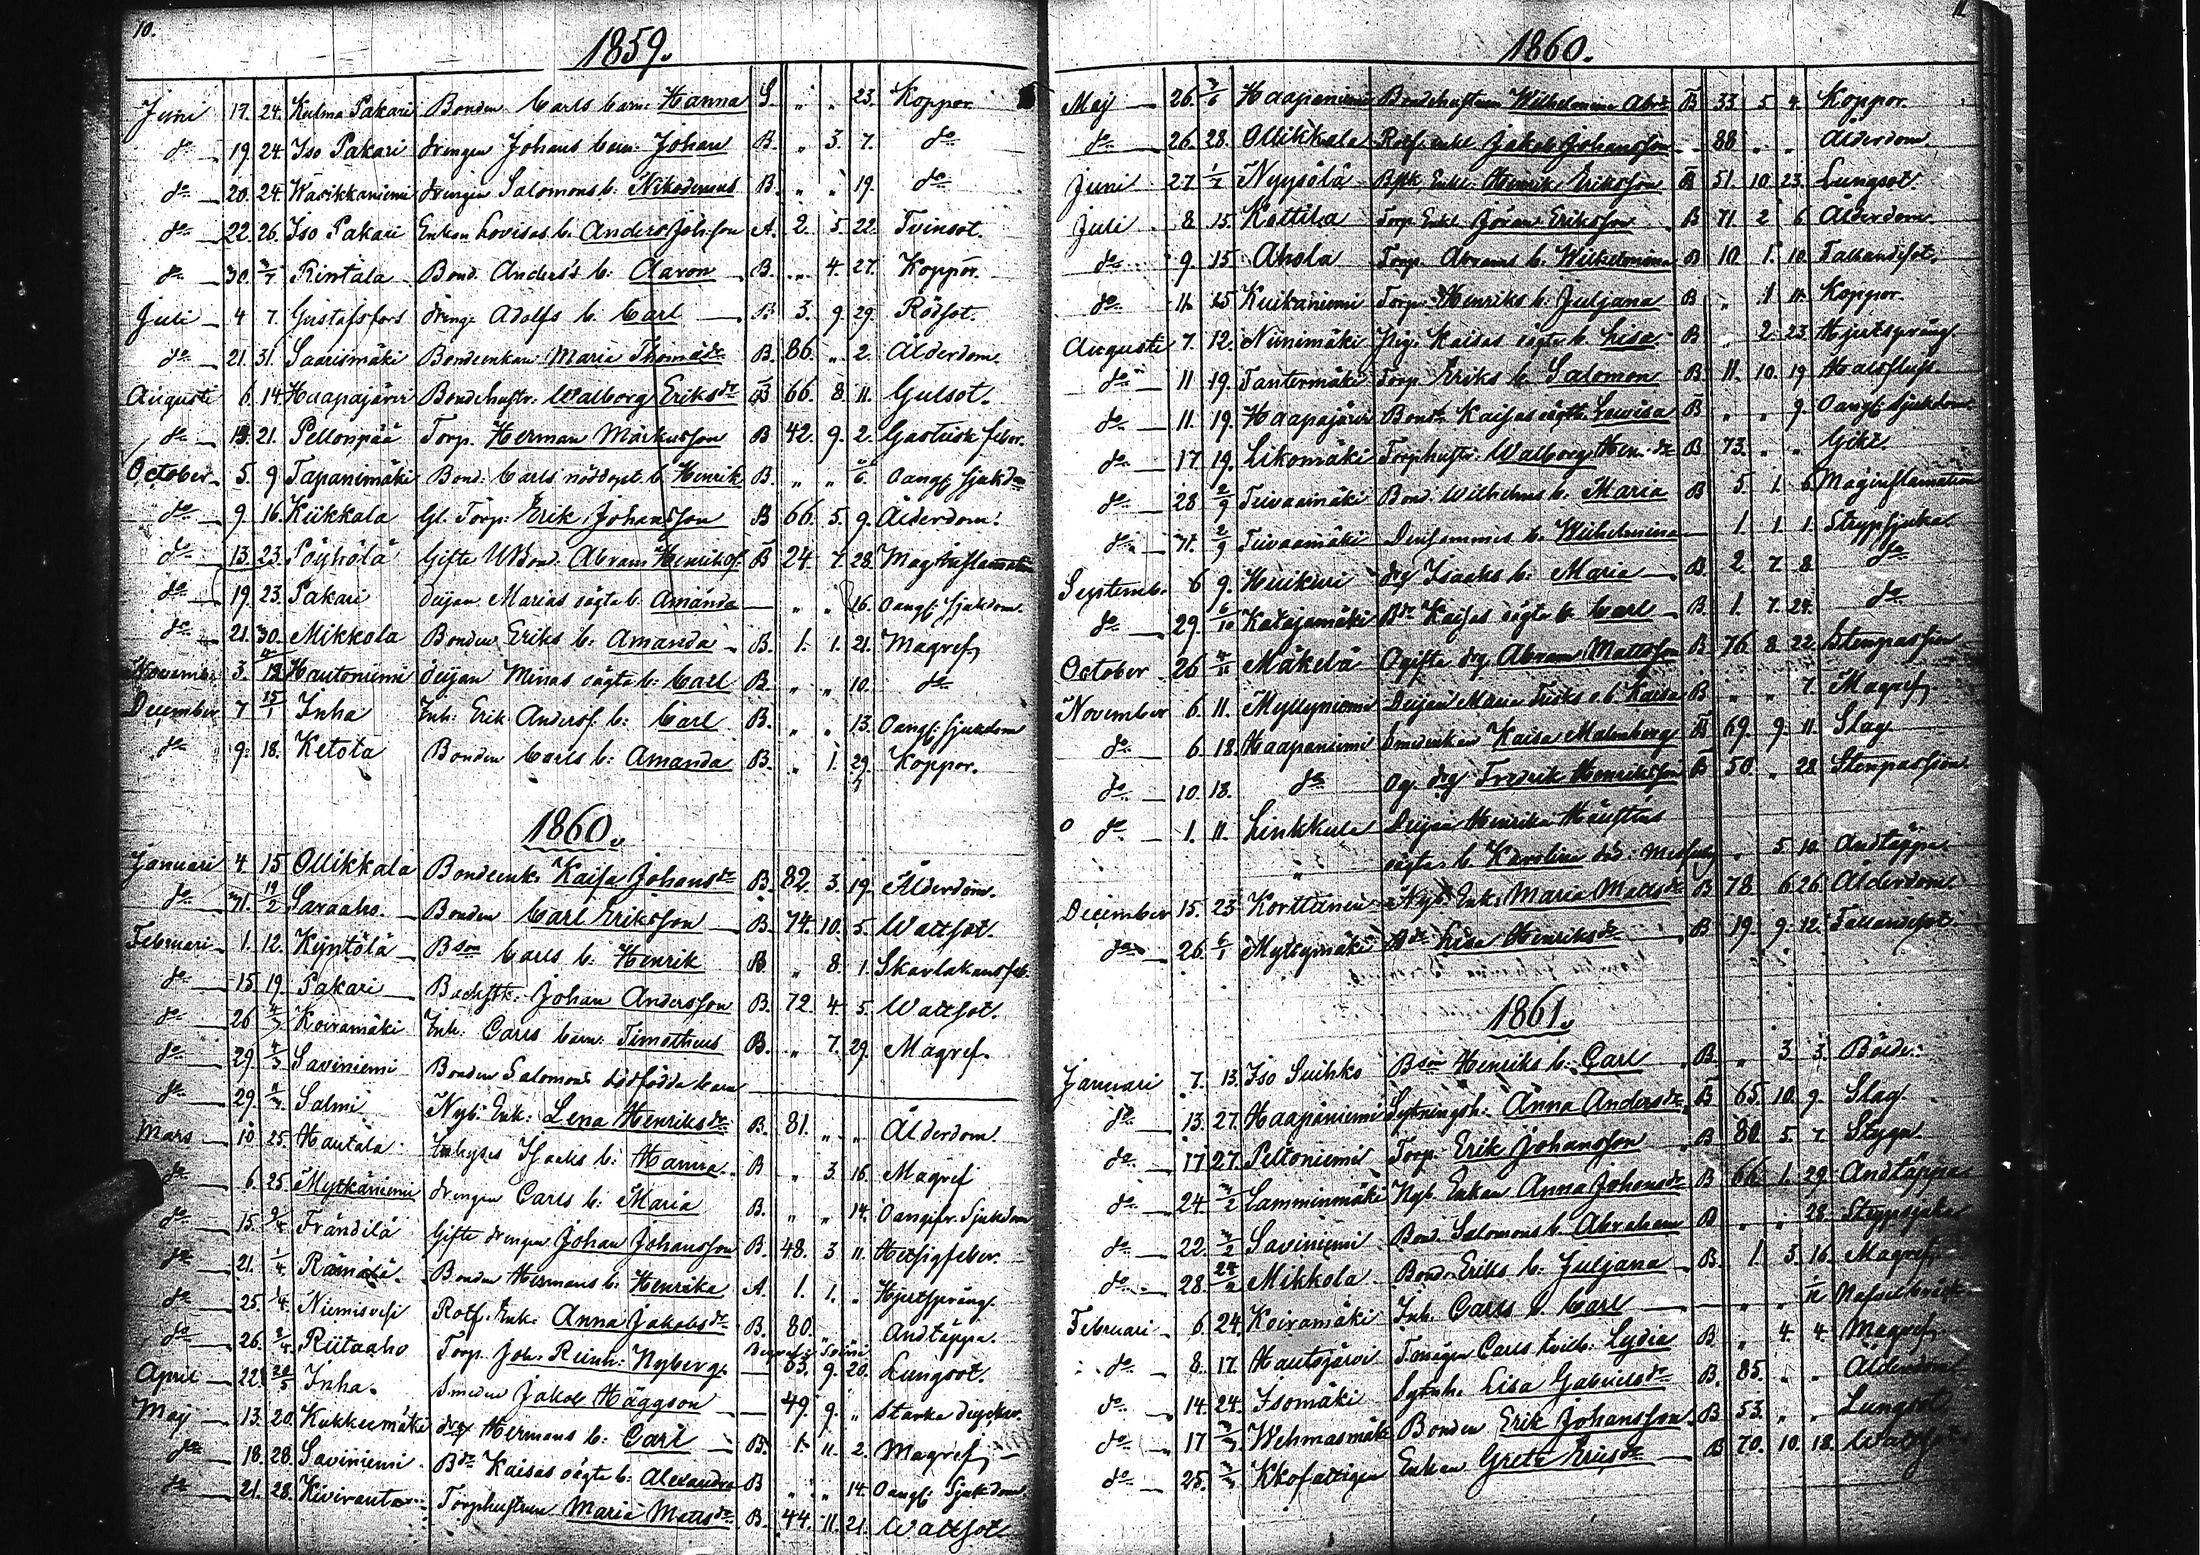 10.
1859.
Juni 17. 24. Kulma Pakari Bonden Carls barn: Hanna S. " " 23. Koppor
do 19. 24. Iso Pakari drengen Johans barn: Johan B. " 3. 7. do
do 20. 24. Wasikkaniemi drengen Salomons b. Nikodemus B. " " 19. do
do 22. 26. Iso Pakari Enkan Lovisas b. Anders Joh:son A. 2. 5. 22. Tvinsot.
do 30. 3/7 Rintala Bond. Anders's b: Aaron B. " 4. 27. Koppor.
Juli 4 7. Gustafsfors dreng. Adolfs b. Carl B. 3. 9. 29. Rödsot.
do 21. 31. Saarismäki Bondeenkan Maria Thomasdr B. 86. " 2. Ålderdom.
Augusti 6. 14 Haapajärvi Bondehustr: Walborg Eriksdr B 66. 8. 11. Gulsot.
do 13. 21. Pellonpää Torp. Herman Markusson B 42. 9. 2. Gastrisk feber.
October 5. 9 Tapanimäki Bond. Carls nöddöpt b. Henrik B. " " Oangf. sjukdm
do 9. 16. Kiikkala Gl. Torp. Erik Johansson B 66. 5. 9. Ålderdom.
do 13. 23. Pöyhölä Gifte Abram Henriksf. B 24. 7. 28. Mag Inflammation
do 19. 23. Pakari deijan Marias oägta b. Amanda " " 16. Oangf. sjukdom.
do 21. 30. Mikkola Bonden Eriks b. Amanda B. 1. 1. 21. Magref
November 3. 12 Hautoniemi deijan Minas oägta b: Carl B " " 10. do
December 7 15/1 Inha Inh: Erik Andersf. b: Carl B. " " 13. Oangf. sjukdom
do 9. 18. Ketola Bonden Carls b: Amanda B. " 1. 29. Koppor.
1860.
Januari 4. 15 Ollikkala Bondeenk: Kaisa Johansdr B. 82. 3. 19. Ålderdom.
do 31. 19/2 Saraaho. Bonden Carl Eriksson B. 74. 10. 5. Wattsot.
Februari 1. 12. Kyntölä Bson Carls b: Henrik B. " 8. 1. Skarlakansfeb.
do 15. 19. Pakari Backstk. Johan Andersson B. 72. 4. 5. Wattsot.
do 26 4/3 Koiramäki Inh. Carls barn: Timotheus B. " 7. 29. Magref.
do 29. 4/3 Saviniemi Bonden Salomons dödfödda barn
do 29. Salmi Nyb. Enk: Lena Henriksdr B. 81. " " Ålderdom.
Mars 10 25. Hautala Inhyses Isaaks b: Hanna B " 3. 16. Magref
do 6. 25. Myrkäniemi drengen Carls b: Maria B. " " 14. Oangifv. Sjukdom
do 15. Frändilä Gifte drengen Johan Johansson B. 48. 3. 11. Hetsigfeber.
do 21. 1/4 Rämälä. Bonden Hermans b: Henrika A 1. 1. " Hjertsprång.
do 25. 1/4. Niemisvesi Rotf. Enk: Anna Jakobsdr B. 80. " Andtäppa.
do 26. 2/4 Riitaaho Torp. Joh: Reinh: Nyberg. 63. 9. 20. Lungsot.
April 22. 20/5 Inha. Smeden Jakob Häggson 49. 9. " Starka
Maj 13. 20. Kukkumäki drg Hermans b: Carl B. 1. 11. 2. Magref
do 18. 28. Saviniemi Bdr Kaisas oägta b: Alexandra B " " 14. Oangf. Sjukdom
do 21. 28. Kiviranta Torphustrun Maria Mattsdr B. 44. 11. 21. Wattsot
11
1860.
Maj 26. 3/6 Haapaniemi Bondehustrun Wilhelmina Abrdr B 33. 5 4. Koppor.
do 26. 28. Ollikkala Rotf. enkl Jakob Johansson 88 " " Ålderdom
Juni 27 1/7 Nyysölä Enkl. Henrik Eriksson B 51. 10. 23. Lungsot
Juli 8 15. Kottila Torp Enkl Jöran Eriksson B 71. 2 6 Ålderdom.
do 9. 15 Ahola Torp. Abrams b. Wilhelmina B 10 1. 10. Fallandesot.
do 11. 25 Kuikaniemi Torp. Henriks b. Juljana B " 1 11. Koppor.
Augusti 7. 12. Niinimäki Pig. Kaisas oägta b. Lisa B " 2. 23 Hjertsprång
do 11 19. Tantermäki Torp. Eriks b. Salomon B 11. 10. 19 Halsfluss
do 11. 19. Haapajärvi Bondr Kaisas oägta Lowisa B " " 9. Oangf. sjukdom.
do 17. 19. Likomäki Torphustr. Walborg Hen:dr B 73. " " Gikt.
do 28 2/9 Teivaamäki Bond. Wilhelms b. Maria B 5. 1. 6 Maginflamation
do 31. 2/9 Teivaamäki Densammes b. Wilhelmina 1. 1. 1. Strypsjuka
Septemb. 6 9. Huikuri drg Isaaks b: Maria B. 2 7 8 do
do 29. 6/10 Katajamäki Bdr Kaisas oägta b. Carl B. 1. 7. 24. do
October 26 4/11 Mäkelä Ogifta drg. Abram Mattsson B. 76 8 22. Stenpassion
November 6. 11. Myllyniemi Deijan Maria o.b. Kaisa B " " 7. Magref
do 6. 18. Haapaniemi Smedenkan Kaisa Malmberg B 69. 9. 11. Slag.
do 10. 18. do Og. drg Fredrik Henriksson B 50. " 28 Stenpassion
do 1. 11. Linkkula Deijan Henrika
oägta b. Karolina " 5 10. Andtäppa.
December 15. 23 Korttinen Nyb. Enk. Maria Mattsdr B 78 6 26. Ålderdom.
do 26. 6/1 Myllymäki Bdr Lisa Henriksdr B 19. 9. 12. Fallandesot.
1861.
Januari 7. 13. Iso Suihko Bson Henriks b: Carl B " 3. 3.
do 13. 27. Haapaniemi Sytningsh. Anna Andersdr B 65. 10. 9. Slag.
do 17 27. Peltoniemi Torp. Erik Johansson B 80. 5. 7. Stygn.
do 24 3/2 Lamminmäki Nyb. Enkan Anna Johansdr B 66. 1. 29. Andtäppa
do 22. 3/2 Saviniemi Bond. Salomons b. Abraham B " " 28. Strypsjuka
do 28. 24/2 Mikkola Bond. Eriks b. Juljana B. 1. 3. 16. Magref
Februari 6. 24. Koiramäki Inh. Carls b. Carl " "
do 8. 17. Hautojärvi Carls tvilb: Lydia B " 4. 4. Magref
do 14. 24. Isomäki Sytnh. Lisa Gabrielsdr B. 85. " " Ålderdom
do 17 3/3 Wehmasmäki Bonden Erik Johansson B. 53. " " Lungsot
do 25. 3/3 Kkofattigen Enkan Greta Ericsdr B 70. 10. 18. Wattsot